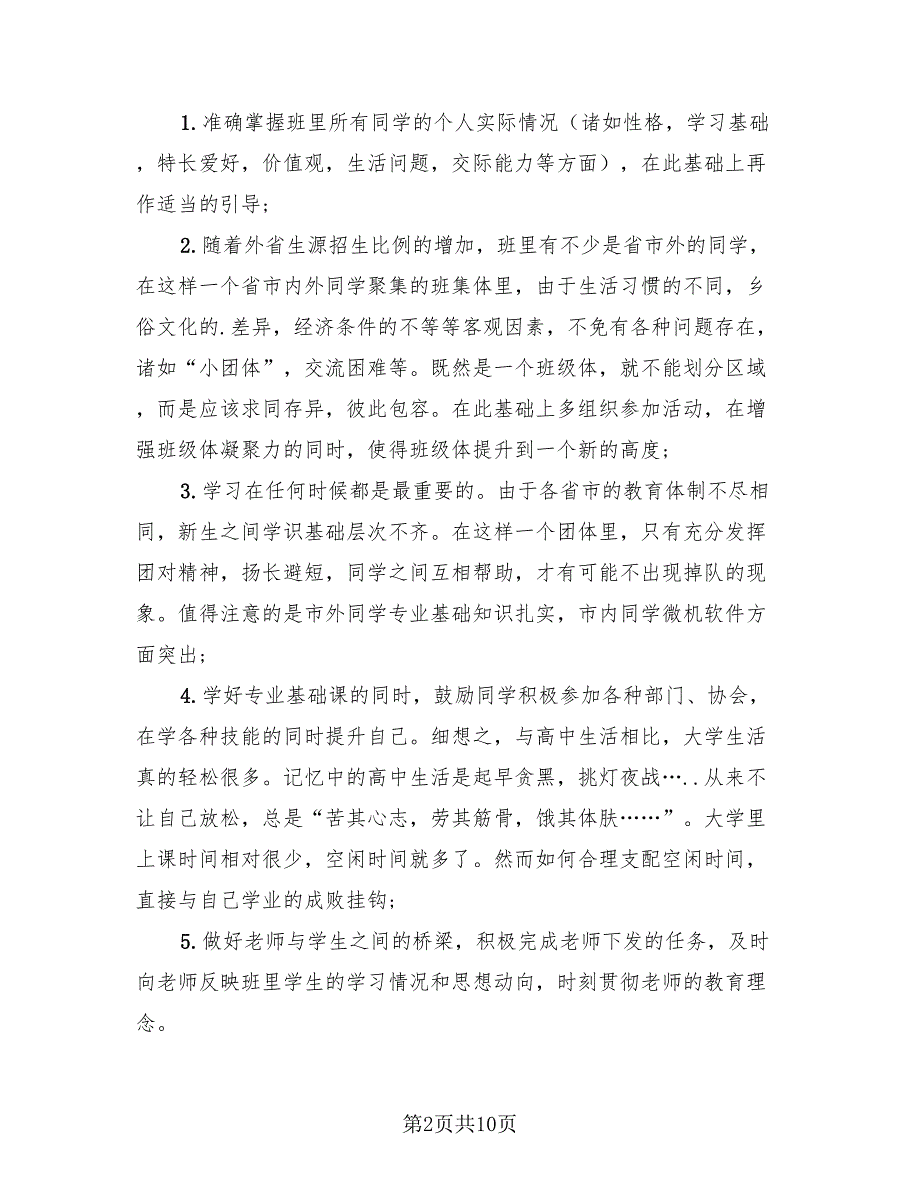 1.准确掌握班里所有同学的个人实际情况（诸如性格，学习基础
，特长爱好，价值观，生活问题，交际能力等方面），在此基础上再
作适当的引导;
2.随着外省生源招生比例的增加，班里有不少是省市外的同学，
在这样一个省市内外同学聚集的班集体里，由于生活习惯的不同，乡
俗文化的.差异，经济条件的不等等客观因素，不免有各种问题存在，
诸如“小团体”，交流困难等。既然是一个班级体，就不能划分区域
，而是应该求同存异，彼此包容。在此基础上多组织参加活动，在增
强班级体凝聚力的同时，使得班级体提升到一个新的高度;
3.学习在任何时候都是最重要的。由于各省市的教育体制不尽相
同，新生之间学识基础层次不齐。在这样一个团体里，只有充分发挥
团对精神，扬长避短，同学之间互相帮助，才有可能不出现掉队的现
象。值得注意的是市外同学专业基础知识扎实，市内同学微机软件方
面突出;
4.学好专业基础课的同时，鼓励同学积极参加各种部门、协会，
在学各种技能的同时提升自己。细想之，与高中生活相比，大学生活
真的轻松很多。记忆中的高中生活是起早贪黑，挑灯夜战…..从来不
让自己放松，总是“苦其心志，劳其筋骨，饿其体肤……”。大学里
上课时间相对很少，空闲时间就多了。然而如何合理支配空闲时间，
直接与自己学业的成败挂钩;
5.做好老师与学生之间的桥梁，积极完成老师下发的任务，及时
向老师反映班里学生的学习情况和思想动向，时刻贯彻老师的教育理
念。
第2页共10页